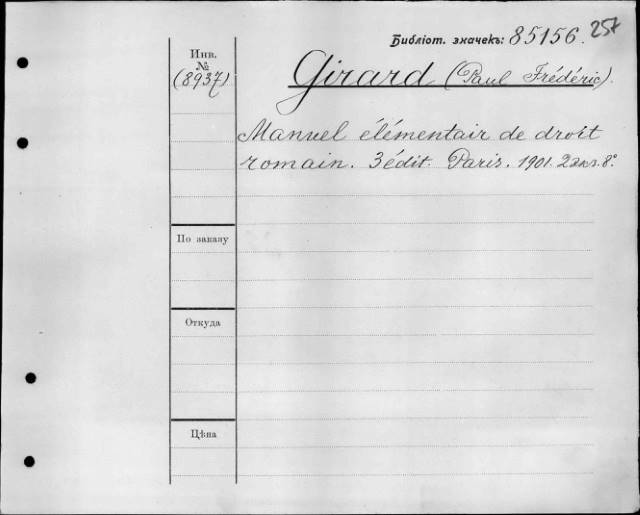 Библіот. значекъ: 85156. 257
Инв.
№
(8937)
Girard (Paul Frédéric).
Manuel élémentair de droit
romain. 3 édit. Paris. 1901. 2 экз. 8°
По заказу
Откуда
Цѣна